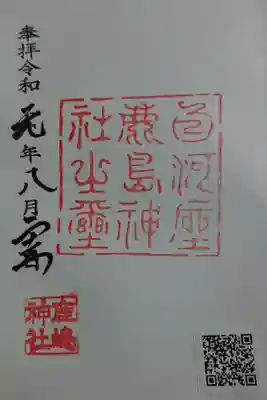 白河座
鹿島神
社之璽
奉拝令和元年八月
鹿嶋
神社